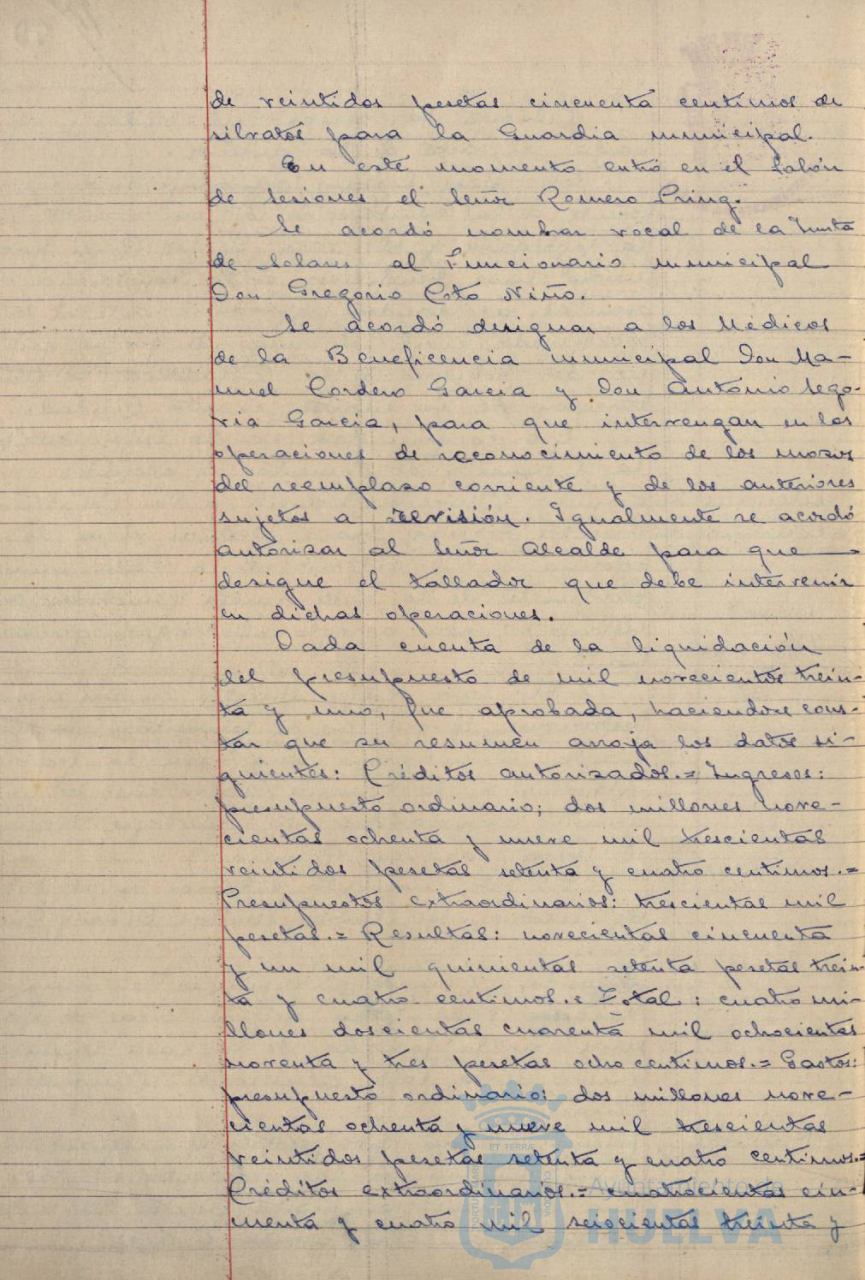 de veintidos pesetas cincuenta centimos de
silvatos para la Guardia municipal.
En este momento entró en el Salón
de Sesiones el Señor Romero Pring.
Se acordó nombrar vocal de la Junta
de Solares al Funcionario municipal
Don Gregorio Coto Niño.
Se acordó designar a los Médicos
de la Beneficencia municipal Don Ma-
nuel Cordero Garcia y Don António Sego-
via Garcia, para que intervengan en las
operaciones de reconocimiento de los mozos
del reemplazo corriente y de los anteriores
sujetos a revisión. Igualmente se acordó
autorizar al Señor Alcalde para que
desigue el tallador que debe intervenir
en dichas operaciones.
Dada cuenta de la liquidación
del presupuesto de mil novecientos trein-
ta y uno, fue aprobada, haciendose cons-
tar que su resumen arroja los datos si-
guientes: Créditos autorizados.= Ingresos:
presupuesto ordinario; dos millones nove-
cientas ochenta y nueve mil trescientas
veintidos pesetas setenta y cuatro centimos.=
Presupuestos extraordinarios: trescientas mil
pesetas.= Resultas: novecientas cincuenta
y un mil quinientas setenta pesetas trein-
ta y cuatro centimos.= Total: cuatro mi-
llones doscientas cuarenta mil ochocientas
noventa y tres pesetas ocho centimos.= Gastos:
presupuesto ordinario: dos millones nove-
cientas ochenta y nueve mil trescientas
veintidos pesetas setenta y cuatro centimos.=
Créditos extraordinarios.= cuatrocientas cin-
cuenta y cuatro mil seiscientas treinta y
Ayuntamiento de
HUELVA